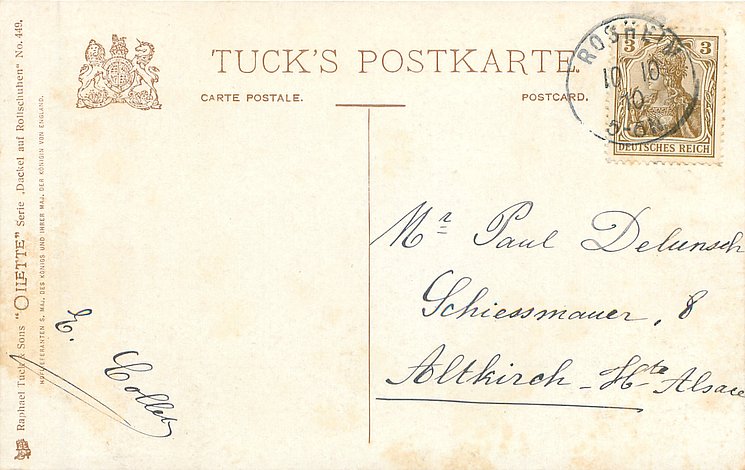 TUCK'S POSTKARTE.
CARTE POSTALE.
POSTCARD.
ROSHEIM
10 10
10
5-6N
3 3
DEUTSCHES REICH
Mr Paul Delunsch
Schiessmauer, 8
Altkirch - Hte Alsace
E. Collet
Raphael Tuck & Sons "OILETTE" Serie „Dackel auf Rollschuhen" No. 449.
HOFLIEFERANTEN S. MAJ. DES KÖNIGS UND IHRER MAJ. DER KÖNIGIN VON ENGLAND.